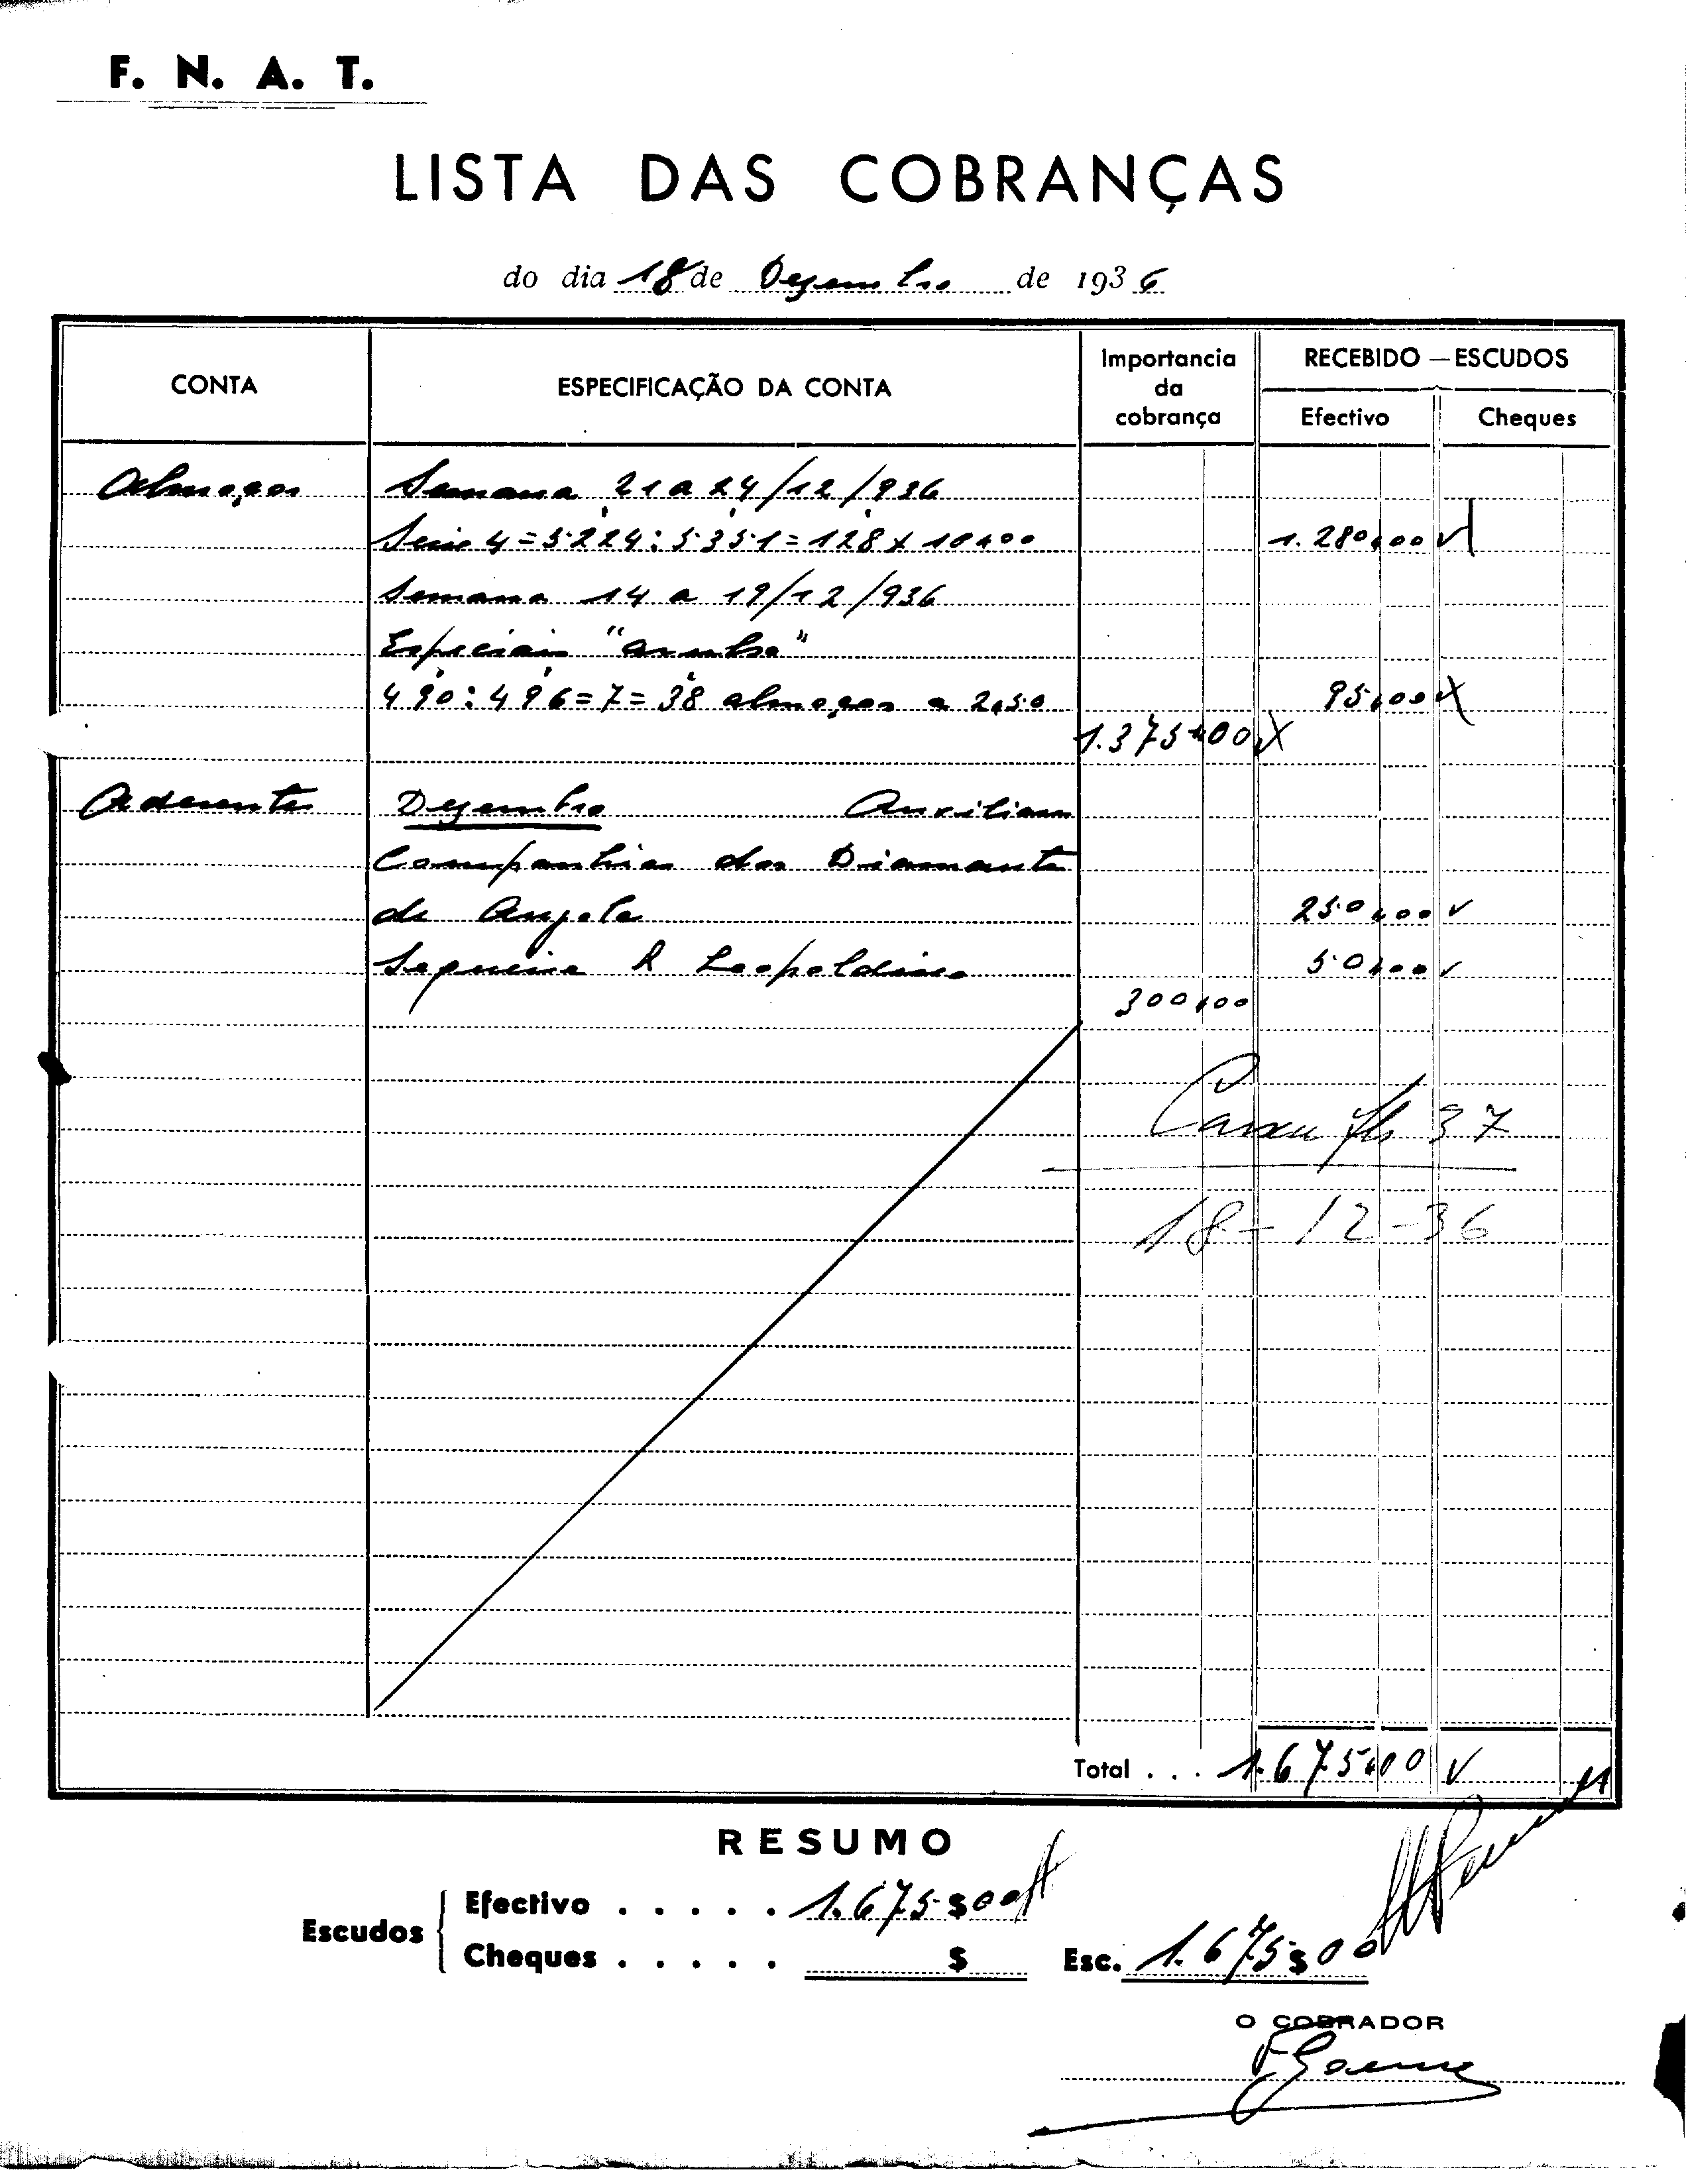 F. N. A. T.
LISTA DAS COBRANÇAS
do dia 18 de Dezembro de 1936
CONTA
ESPECIFICAÇÃO DA CONTA
Importancia da cobrança
RECEBIDO — ESCUDOS
Efectivo
Cheques
Almoços Semana 21 a 24/12/936
Serie 4 = 5.224 : 5.351 = 128 x 10$00 1.280$00
Semana 14 a 19/12/936
Especiais "avulso"
490 : 496 = 7 = 38 almoços a 2$50 95$00
1.375$00
Aderentes Dezembro Auxiliares
Companhia dos Diamantes
de Angola 250$00
Sequeira & Leopoldino 50$00
300$00
Caixa fls 37
18-12-36
Total . . . 1.675$00
RESUMO
Escudos
Efectivo . . . . . 1.675$00
Cheques . . . . . $
Esc. 1.675$00
O COBRADOR